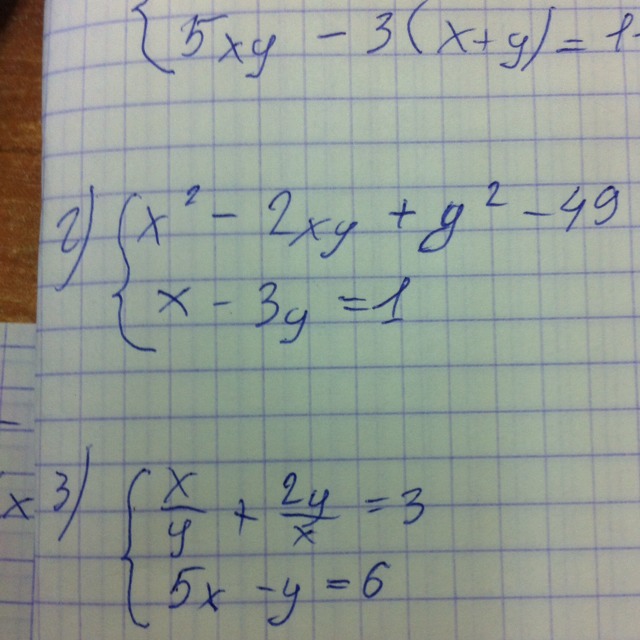 { 5xy - 3(x+y) = 1
2) { x² - 2xy + y² - 49
x - 3y = 1
x
3) { x/y + 2y/x = 3
5x - y = 6